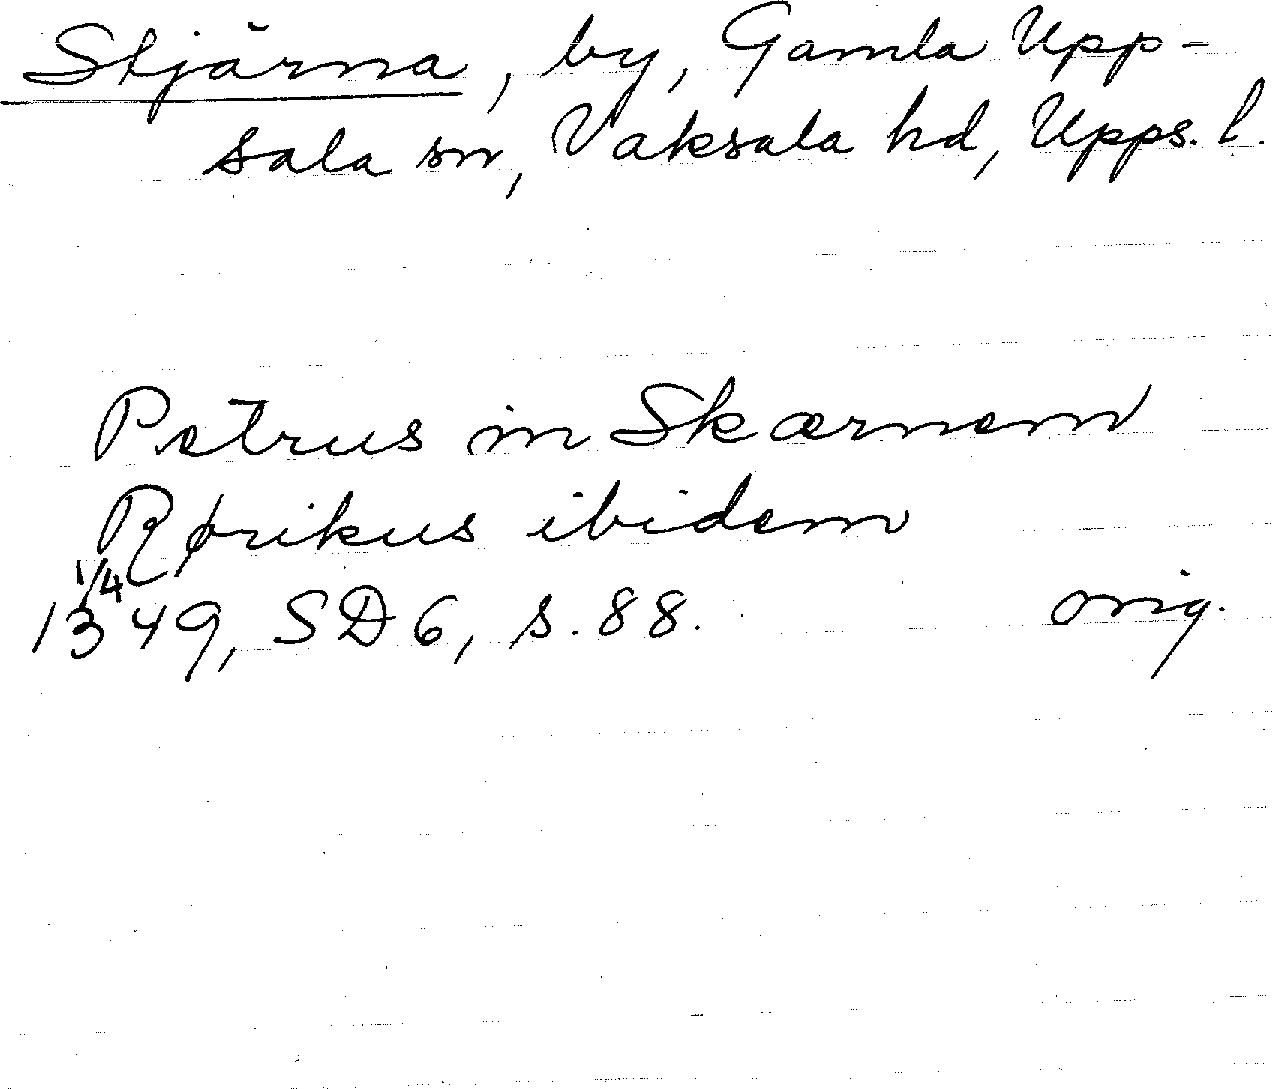 Stjärna, by, Gamla Upp-
sala sn, Vaksala hd, Upps. l.
Petrus in Skærnem
Rørikus ibidem
1/4
1349, SD 6, s. 88. orig.